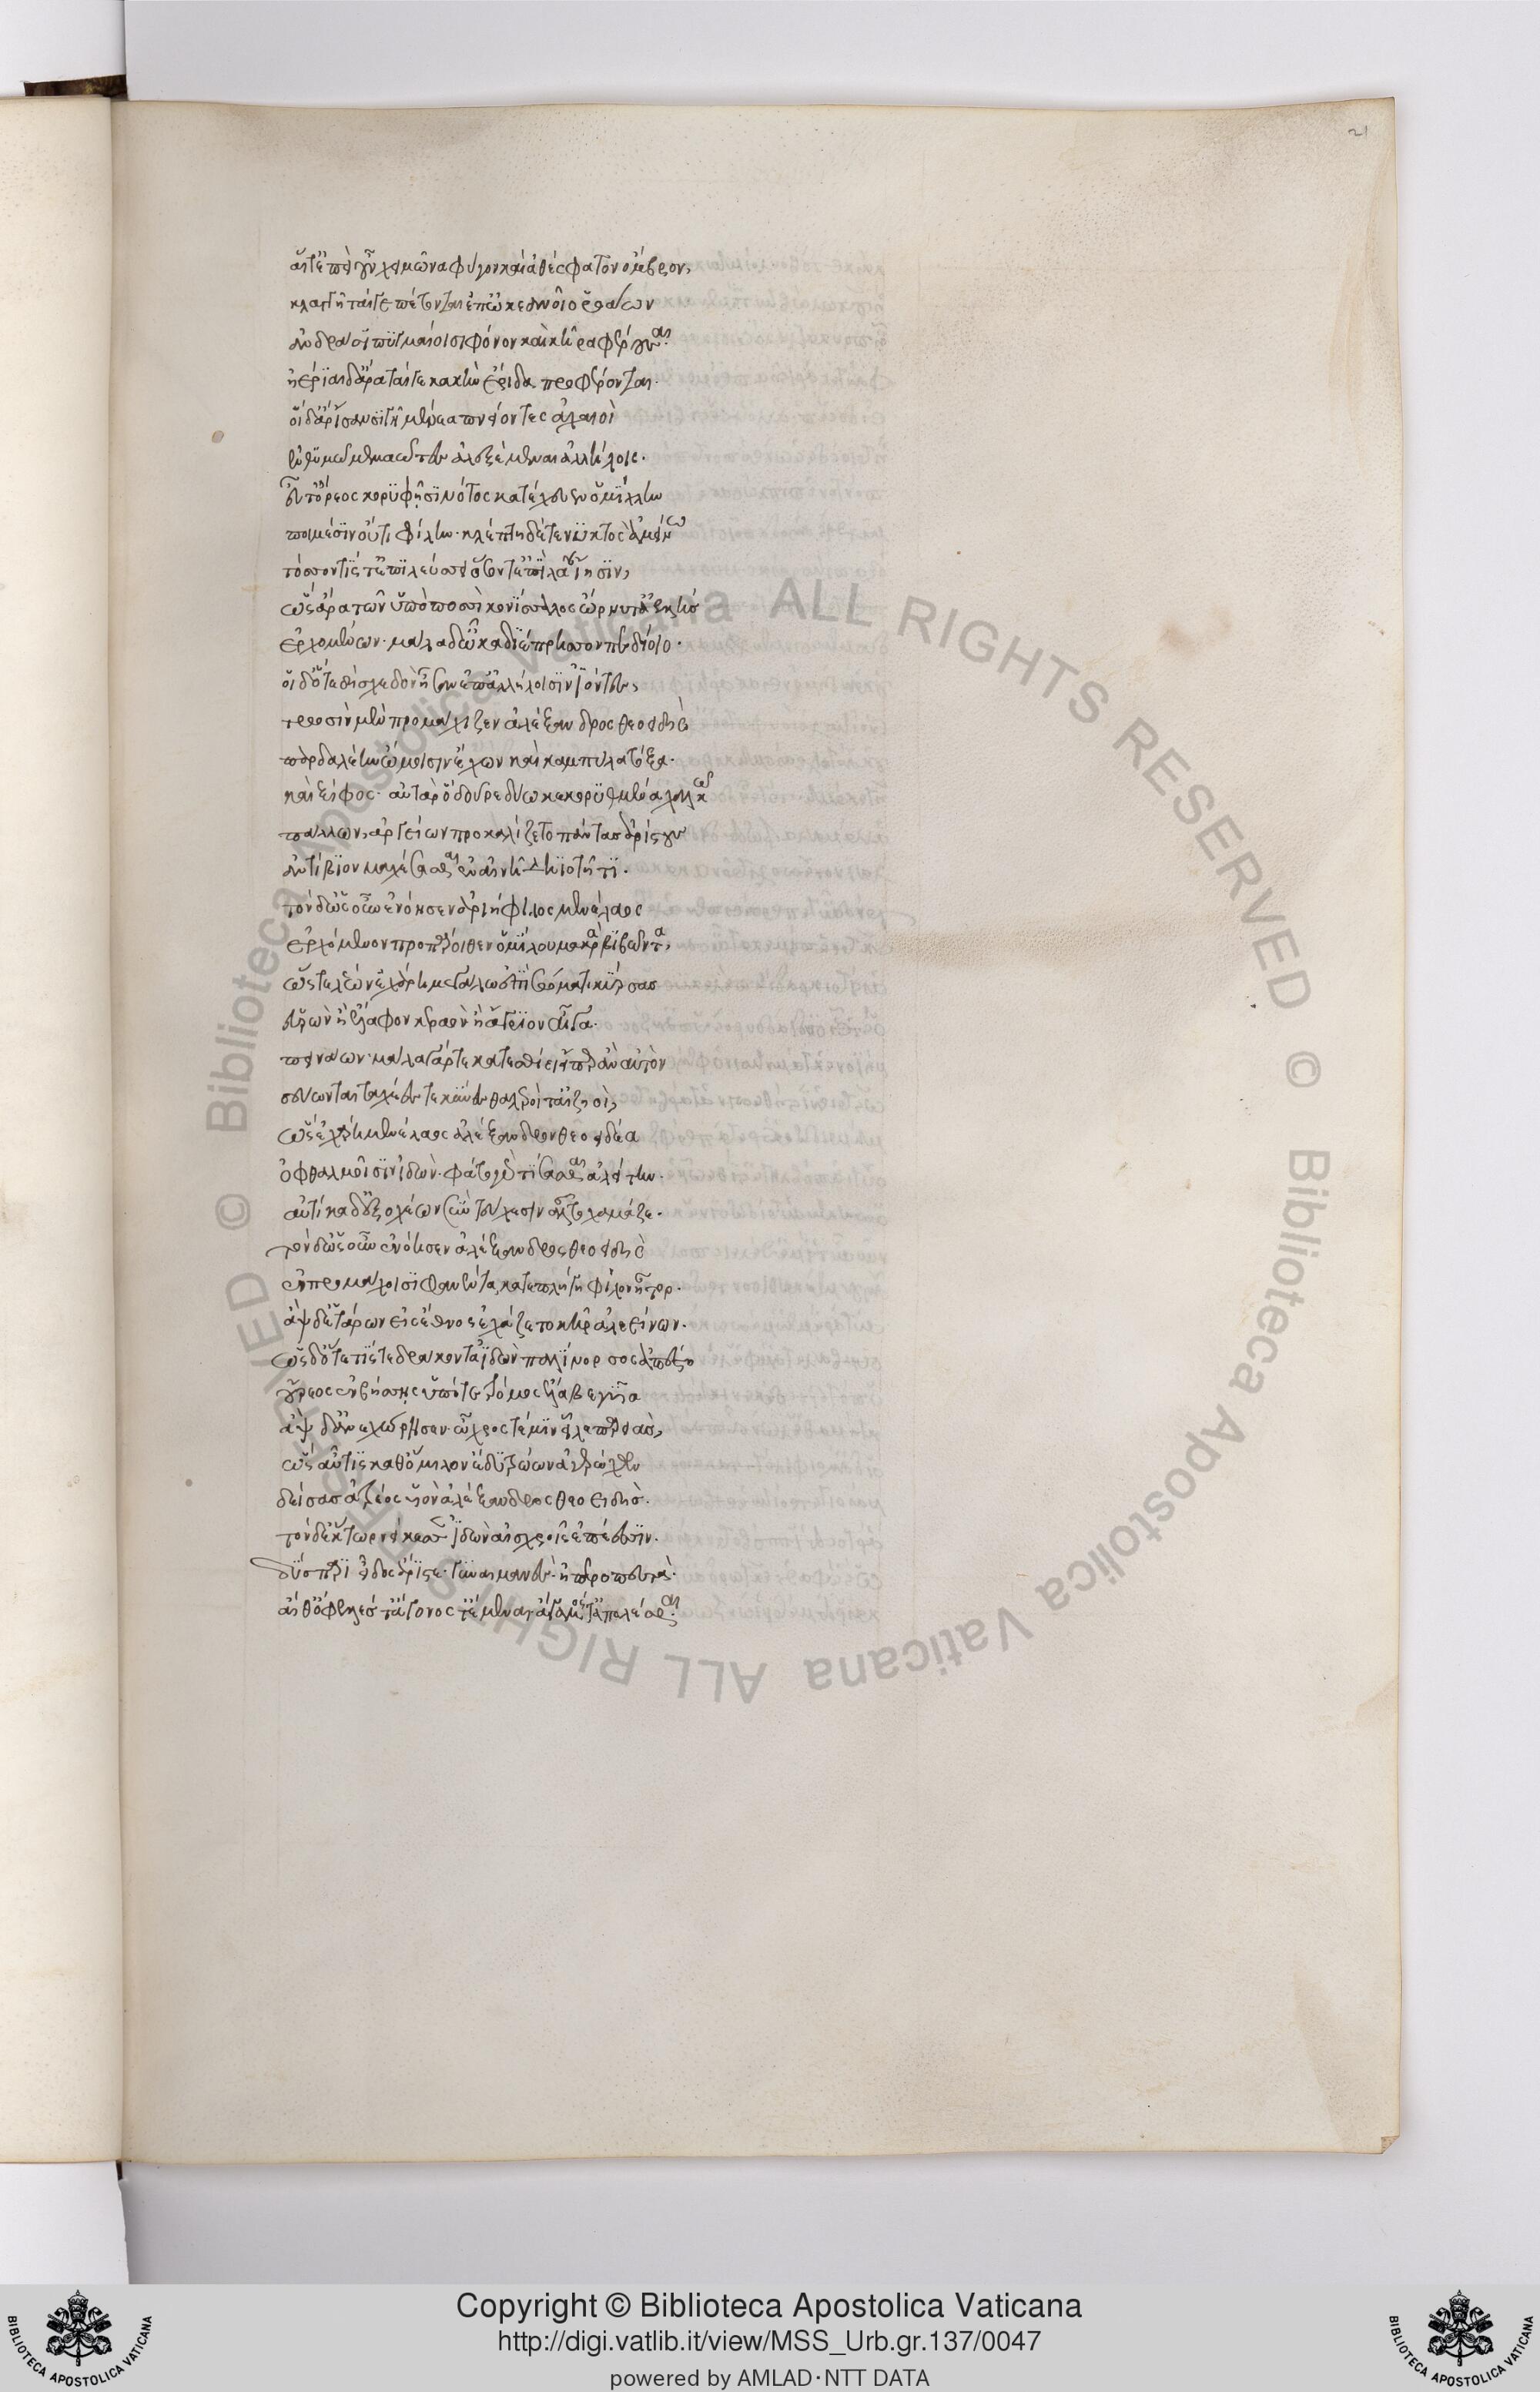 21
αἵτ' ἐπεὶ οὖν χειμῶνα φύγον καὶ ἀθέσφατον ὄμβρον,
κλαγγῇ ταί γε πέτονται ἐπ' ὠκεανοῖο ῥοάων
ἀνδράσι πυγμαίοισι φόνον καὶ κῆρα φέρουσαι·
ἠέριαι δ' ἄρα ταί γε κακὴν ἔριδα προφέρονται.
οἱ δ' ἄρ' ἴσαν σιγῇ μένεα πνείοντες ἀχαιοὶ
ἐν θυμῷ μεμαῶτες ἀλεξέμεναι ἀλλήλοις.
εὖτ' ὄρεος κορυφῇσι νότος κατέχευεν ὀμίχλην
ποιμέσιν οὔτι φίλην· κλέπτῃ δέ τε νυκτὸς ἀμείνω
τόσσον τίς τ' ἐπιλεύσσει ὅσον τ' ἐπὶ λᾶαν ἵησιν,
ὣς ἄρα τῶν ὑπὸ ποσσὶ κονίσαλος ὤρνυτ' ἀελλὴς
ἐρχομένων· μάλα δ' ὦκα διέπρησσον πεδίοιο.
οἱ δ' ὅτε δὴ σχεδὸν ἦσαν ἐπ' ἀλλήλοισιν ἰόντες,
τρωσὶν μὲν προμάχιζεν ἀλέξανδρος θεοειδὴς
παρδαλέην ὤμοισιν ἔχων καὶ καμπύλα τόξα
καὶ ξίφος· αὐτὰρ ὁ δοῦρε δύω κεκορυθμένα χαλκῷ
πάλλων, ἀργείων προκαλίζετο πάντας ἀρίστους
ἀντίβιον μαχέσασθαι ἐν αἰνῇ δηϊοτῆτι.
τὸν δ' ὡς οὖν ἐνόησεν ἀρηΐφιλος μενέλαος
ἐρχόμενον προπάροιθεν ὁμίλου μακρὰ βιβῶντα,
ὥς τε λέων ἐχάρη μεγάλῳ ἐπὶ σώματι κύρσας
εὑρὼν ἢ ἔλαφον κεραὸν ἢ ἄγριον αἶγα
πεινάων· μάλα γάρ τε κατεσθίει εἴπερ ἂν αὐτὸν
σεύωνται ταχέες τε κύνες θαλεροί τ' αἰζηοί,
ὣς ἐχάρη μενέλαος ἀλέξανδρον θεοειδέα
ὀφθαλμοῖσιν ἰδών· φάτο γὰρ τίσασθαι ἀλείτην.
αὐτίκα δ' ἐξ ὀχέων σὺν τεύχεσιν ἆλτο χαμᾶζε.
τὸν δ' ὡς οὖν ἐνόησεν ἀλέξανδρος θεοειδὴς
ἐν προμάχοισι φανέντα, κατεπλήγη φίλον ἦτορ.
ἂψ δ' ἑτάρων εἰς ἔθνος ἐχάζετο κῆρ' ἀλεείνων.
ὡς δ' ὅτε τίς τε δράκοντα ἰδὼν παλίνορσος ἀπέστη
οὔρεος ἐν βήσσῃς ὑπό τε τρόμος ἔλλαβε γυῖα
ἂψ δ' ἀνεχώρησεν· ὦχρός τέ μιν εἷλε παρειάς,
ὣς αὖτις καθ' ὅμιλον ἔδυ τρώων ἀγερώχων
δείσας ἀτρέος υἱὸν ἀλέξανδρος θεοειδής.
τὸν δ' ἕκτωρ νείκεσσεν ἰδὼν αἰσχροῖς ἐπέεσσιν.
δύσπαρι εἶδος ἄριστε· γυναιμανές· ἠπεροπευτά·
αἴθ' ὄφελες τ' ἄγονος τ' ἔμεναι ἄγαμός τ' ἀπολέσθαι.
Copyright © Biblioteca Apostolica Vaticana
http://digi.vatlib.it/view/MSS_Urb.gr.137/0047
powered by AMLAD·NTT DATA